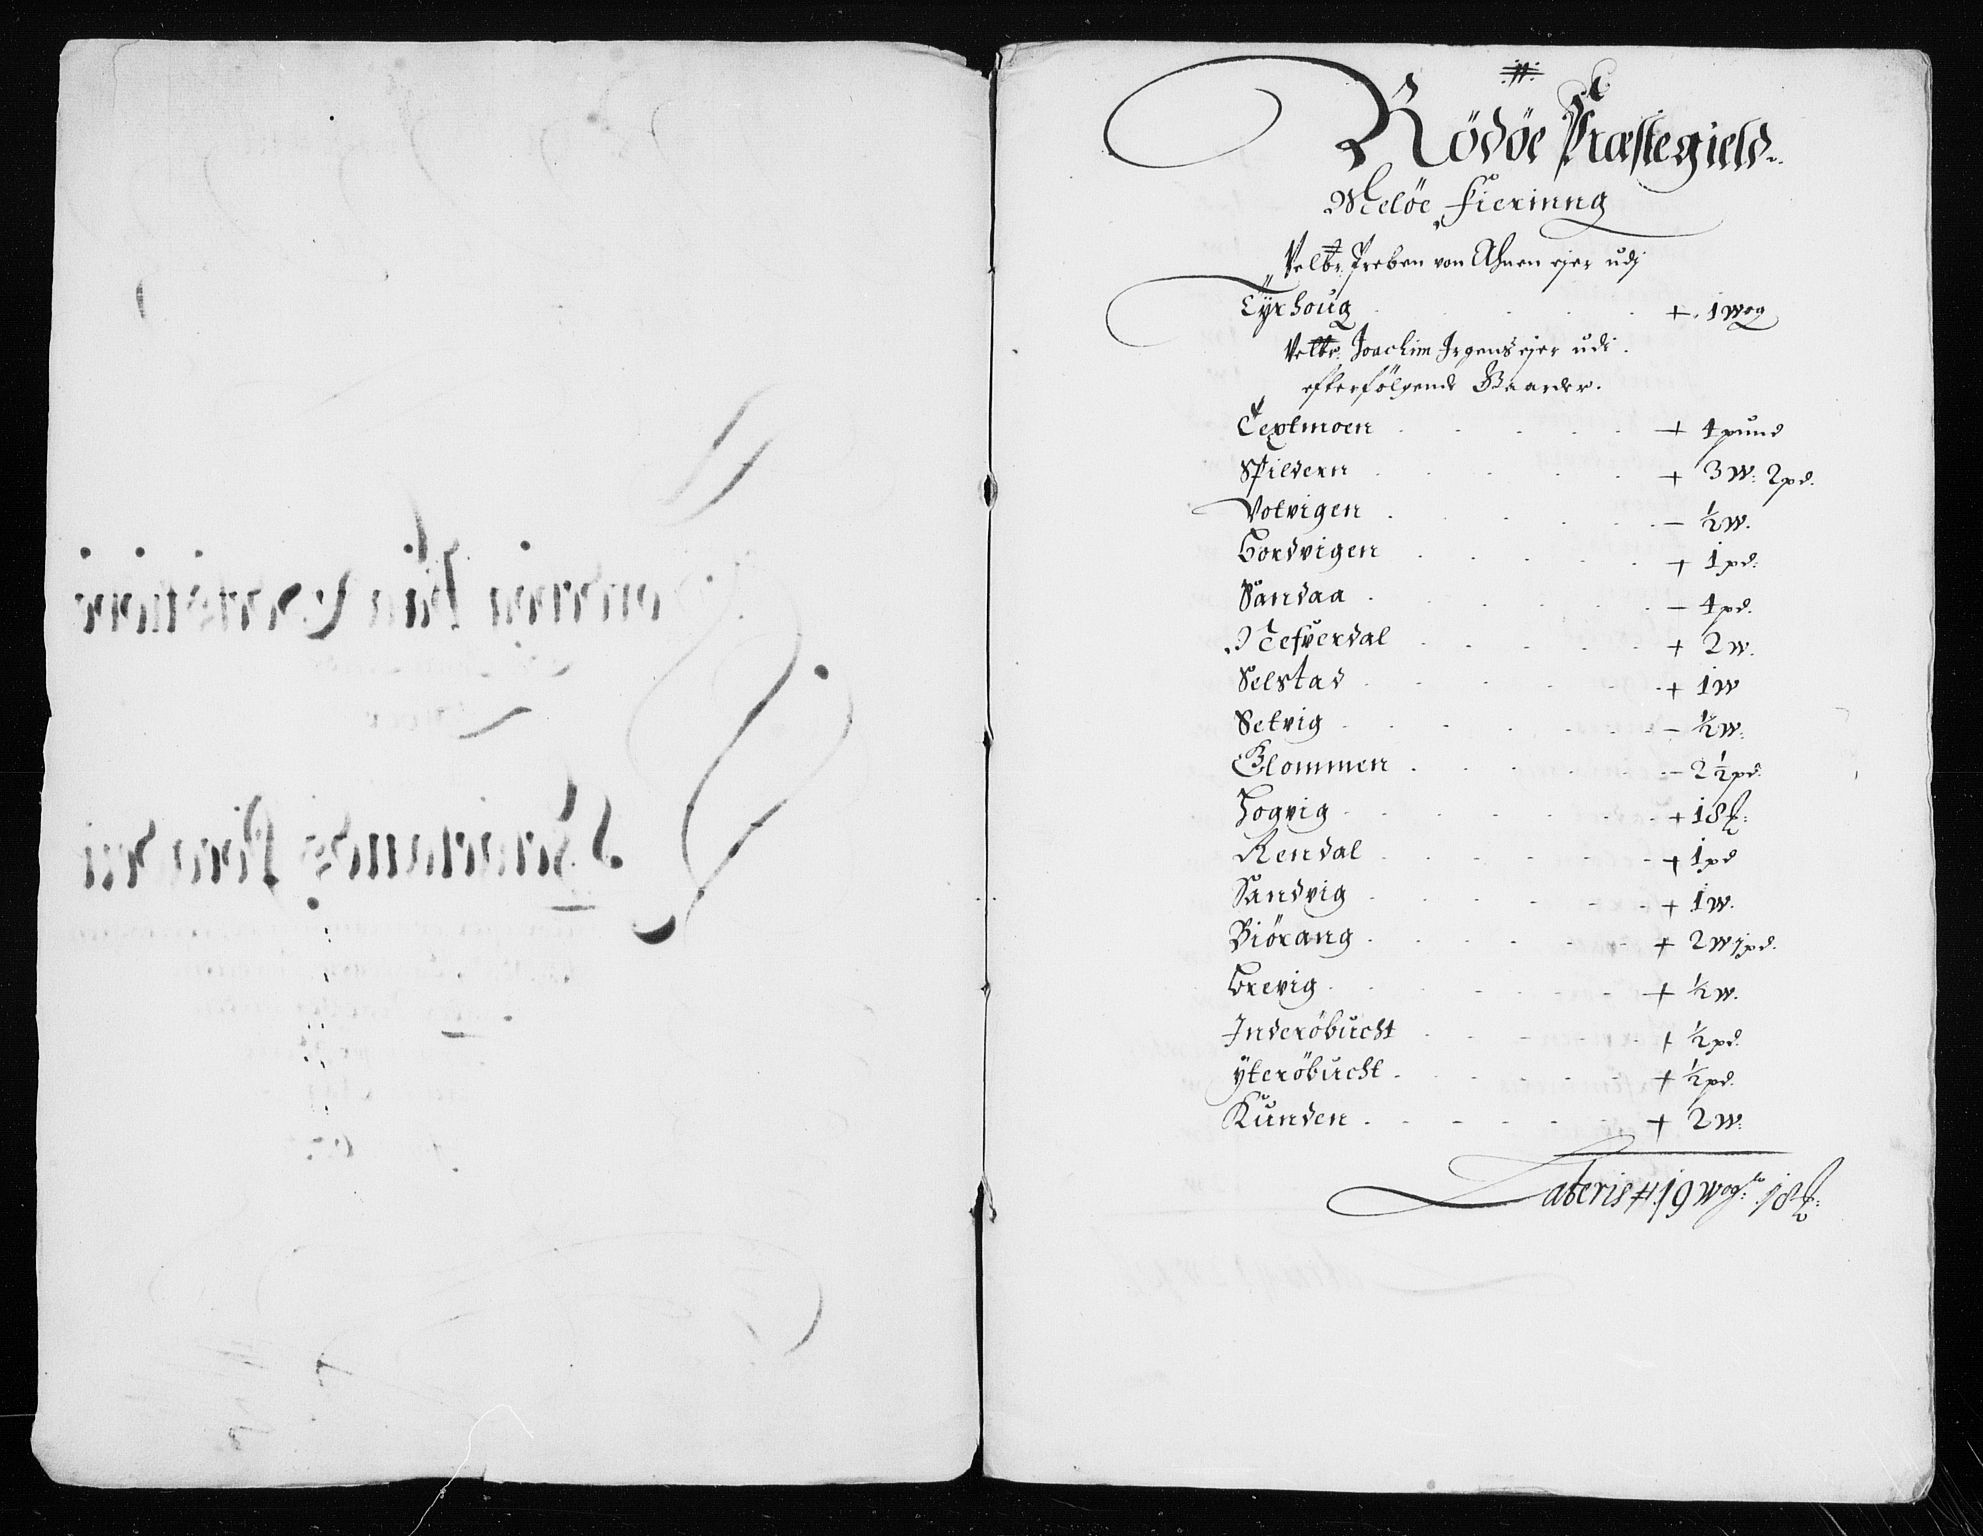 #
Rödöe Præstegield
Meløe Fierinng
Velb: Preben von Ahnen ejer udj
Tÿrhoug + 1 wog
Velb: Joachim Irgens ejer udi
efterfölgende Gaarder.
Textmoen + 4 pund
Spildern + 3 W: 2 pd.
Volvigen - ½ W.
Hordvigen + 1 pd:
Sandaa - 4 pd.
Nefverdal + 2 W.
Selstad + 1 W
Selvig - ½ W:
Glommen - 2½ pd:
Hogvig + 18 ℔:
Rendal + 1 pd
Sandvig + 1 W.
Biörang + 2 W 1 pd.
Brevig + ½ W.
Inderöbucht + ½ pd.
ÿteröbucht + ½ pd.
Kunden + 2 W:
Lateris # 19 Wog: 18 ℔: